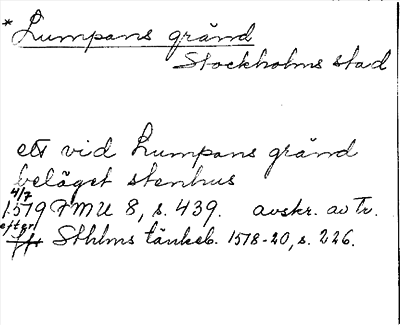 * Lumpans gränd
Stockholms stad
ett vid Lumpans gränd
beläget stenhus
4/7
1519 FMU 8, s. 439. avskr. av Tr.
efter
Sthlms tänkeb. 1518-20, s. 226.